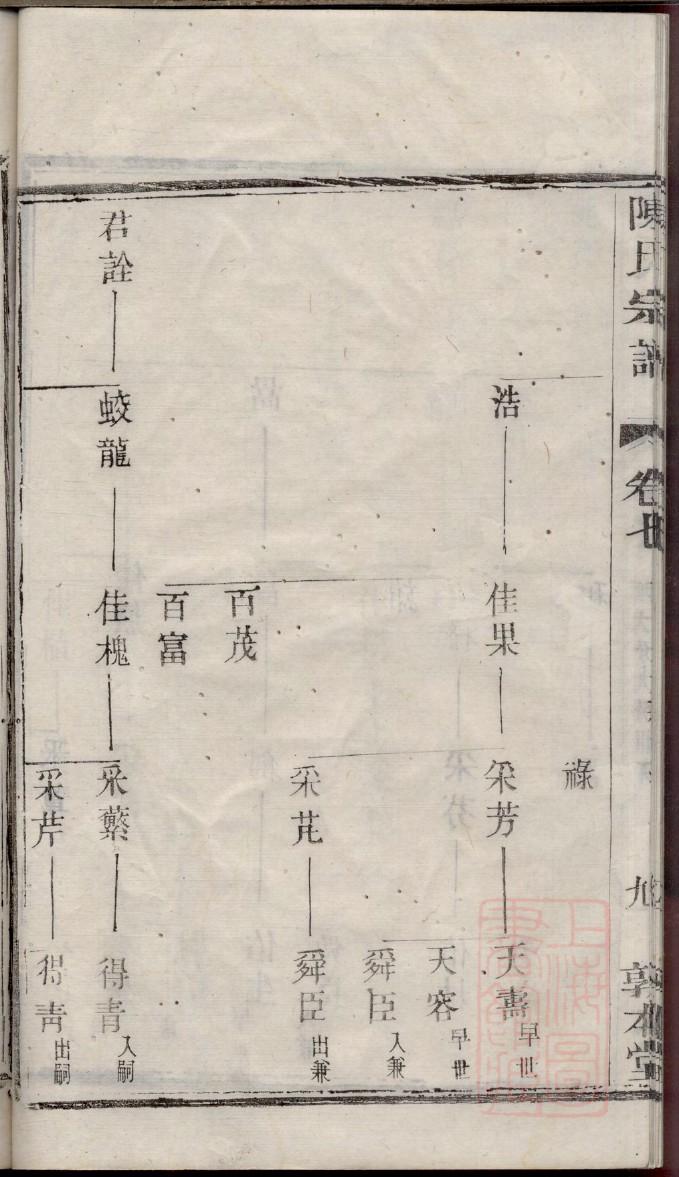 陳氏宗譜
卷七
敦本堂
祿
浩
佳果
采芳
天壽 早世
天容 早世
舜臣 入兼
采芘
舜臣 出兼
百茂
百富
君詮
蛟龍
佳槐
采蘩
得青 入嗣
采芹
得青 出嗣